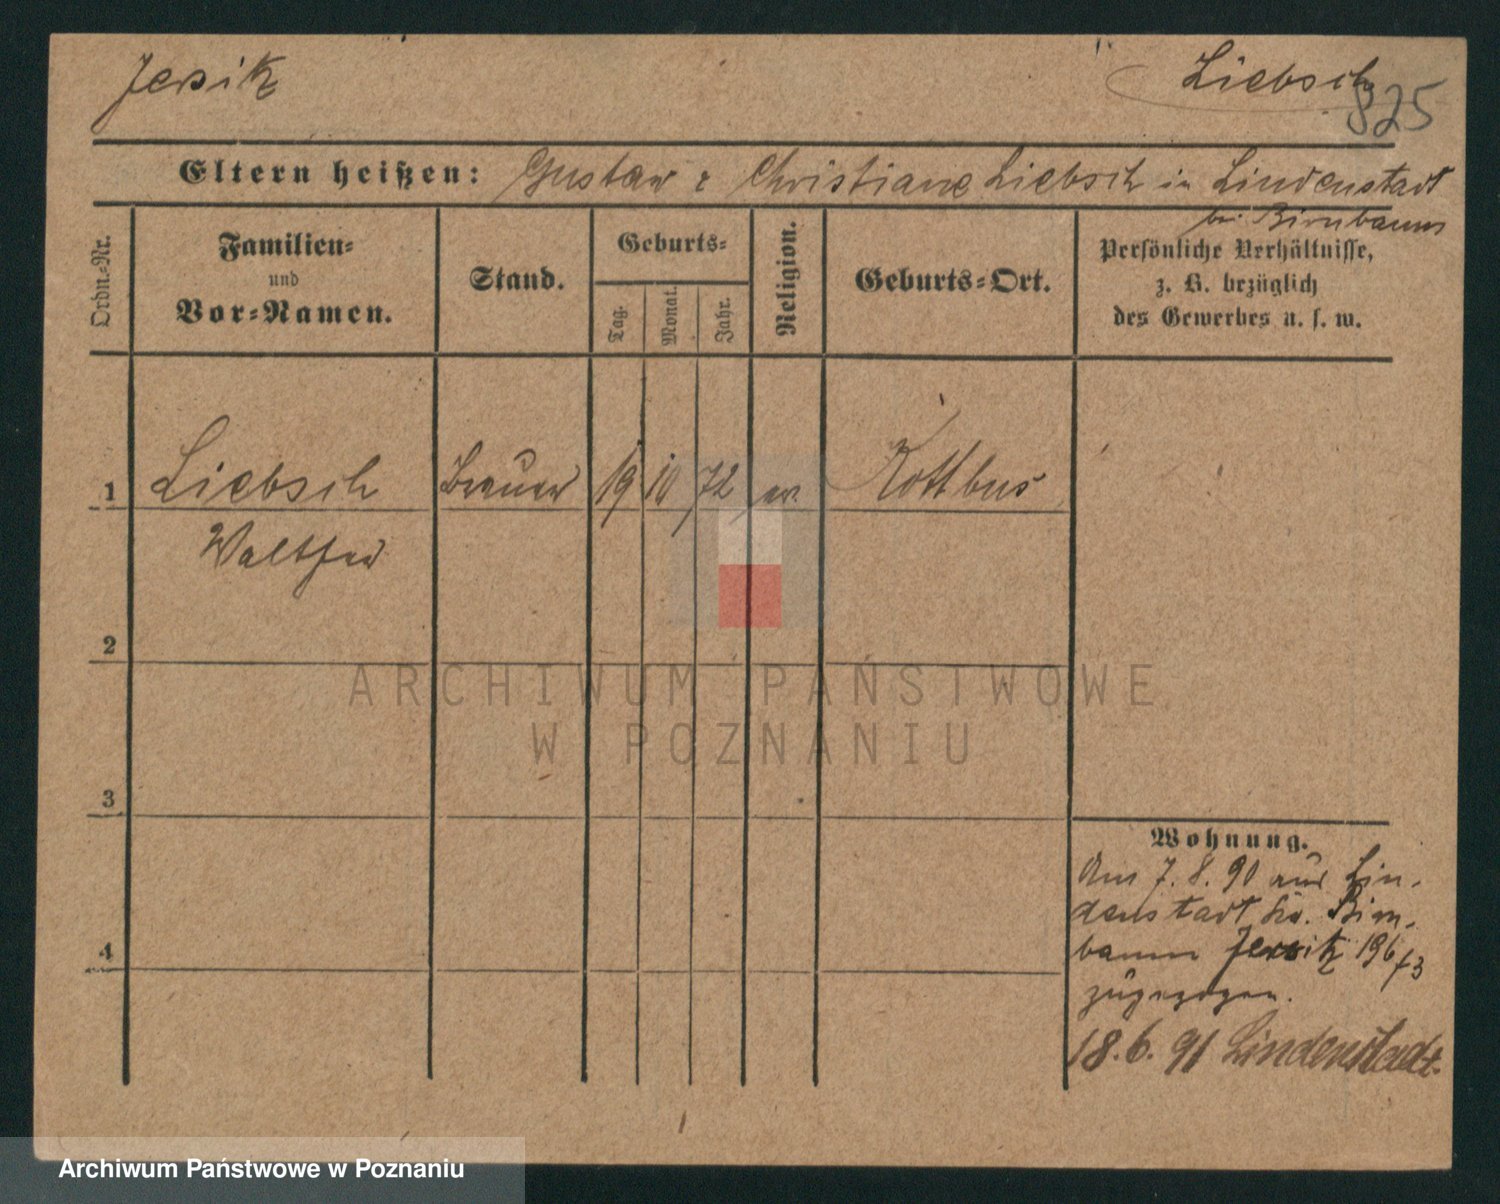 Jersitz
Liebsch
825
Eltern heißen: Gustav & Christiane Liebsch in Lindenstadt
bei Birnbaum
Ordn.-Nr.
Familien-
und
Vor-Namen.
Stand.
Geburts-
Tag.
Monat.
Jahr.
Religion.
Geburts-Ort.
Persönliche Verhältnisse,
z. B. bezüglich
des Gewerbes u. s. w.
1 Liebsch Brauer 19 10 72 ev. Kottbus
Walther
2
3
4
Wohnung.
Am 7. 8. 90 aus Lin-
denstadt Kr. Birn-
baum Jersitz 196
zugezogen.
18. 6. 91 Lindenstadt.
ARCHIWUM PAŃSTWOWE
W POZNANIU
Archiwum Państwowe w Poznaniu